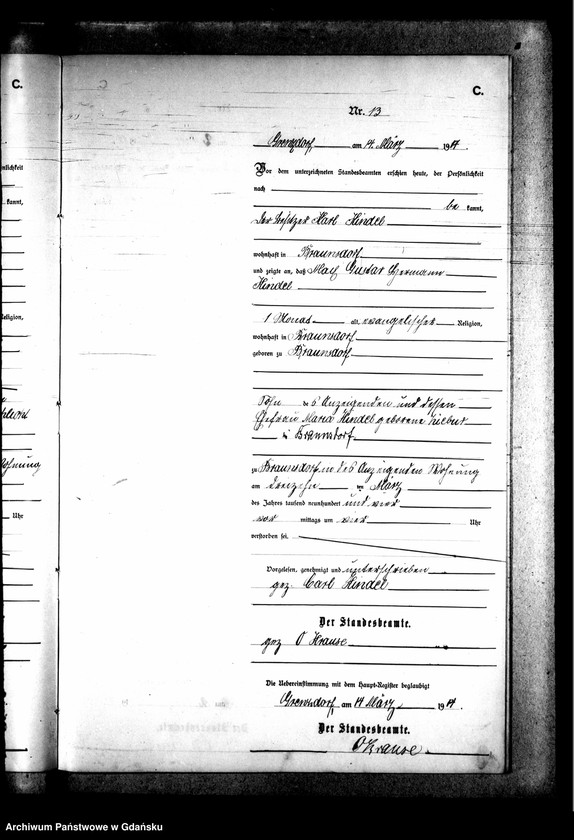 C.
C.
Nr. 13
am 14. März 19
Vor dem unterzeichneten Standesbeamten erschien heute, der Persönlichkeit
nach
be kannt,
der Besitzer Karl Hindel
wohnhaft in Braunsdorf
und zeigte an, daß Max Gustav Hermann
Hindel
1 Monat evangelischer Religion,
wohnhaft in Braunsdorf
geboren zu Braunsdorf
Sohn des Anzeigenden und dessen
Ehefrau Maria Hindel geborene
in Braunsdorf
zu Braunsdorf in des Anzeigenden Wohnung
am dreizehn ten März
des Jahres tausend neunhundert und vier
vor mittags um vier Uhr
verstorben sei.
Vorgelesen, genehmigt und unterschrieben
gez. Carl Hindel
Der Standesbeamte.
gez O Krause
Die Uebereinstimmung mit dem Haupt-Register beglaubigt
am 14 März 19
Der Standesbeamte.
O Krause.
nlichkeit
kannt,
Religion,
Wohnung
Uhr
Archiwum Państwowe w Gdańsku